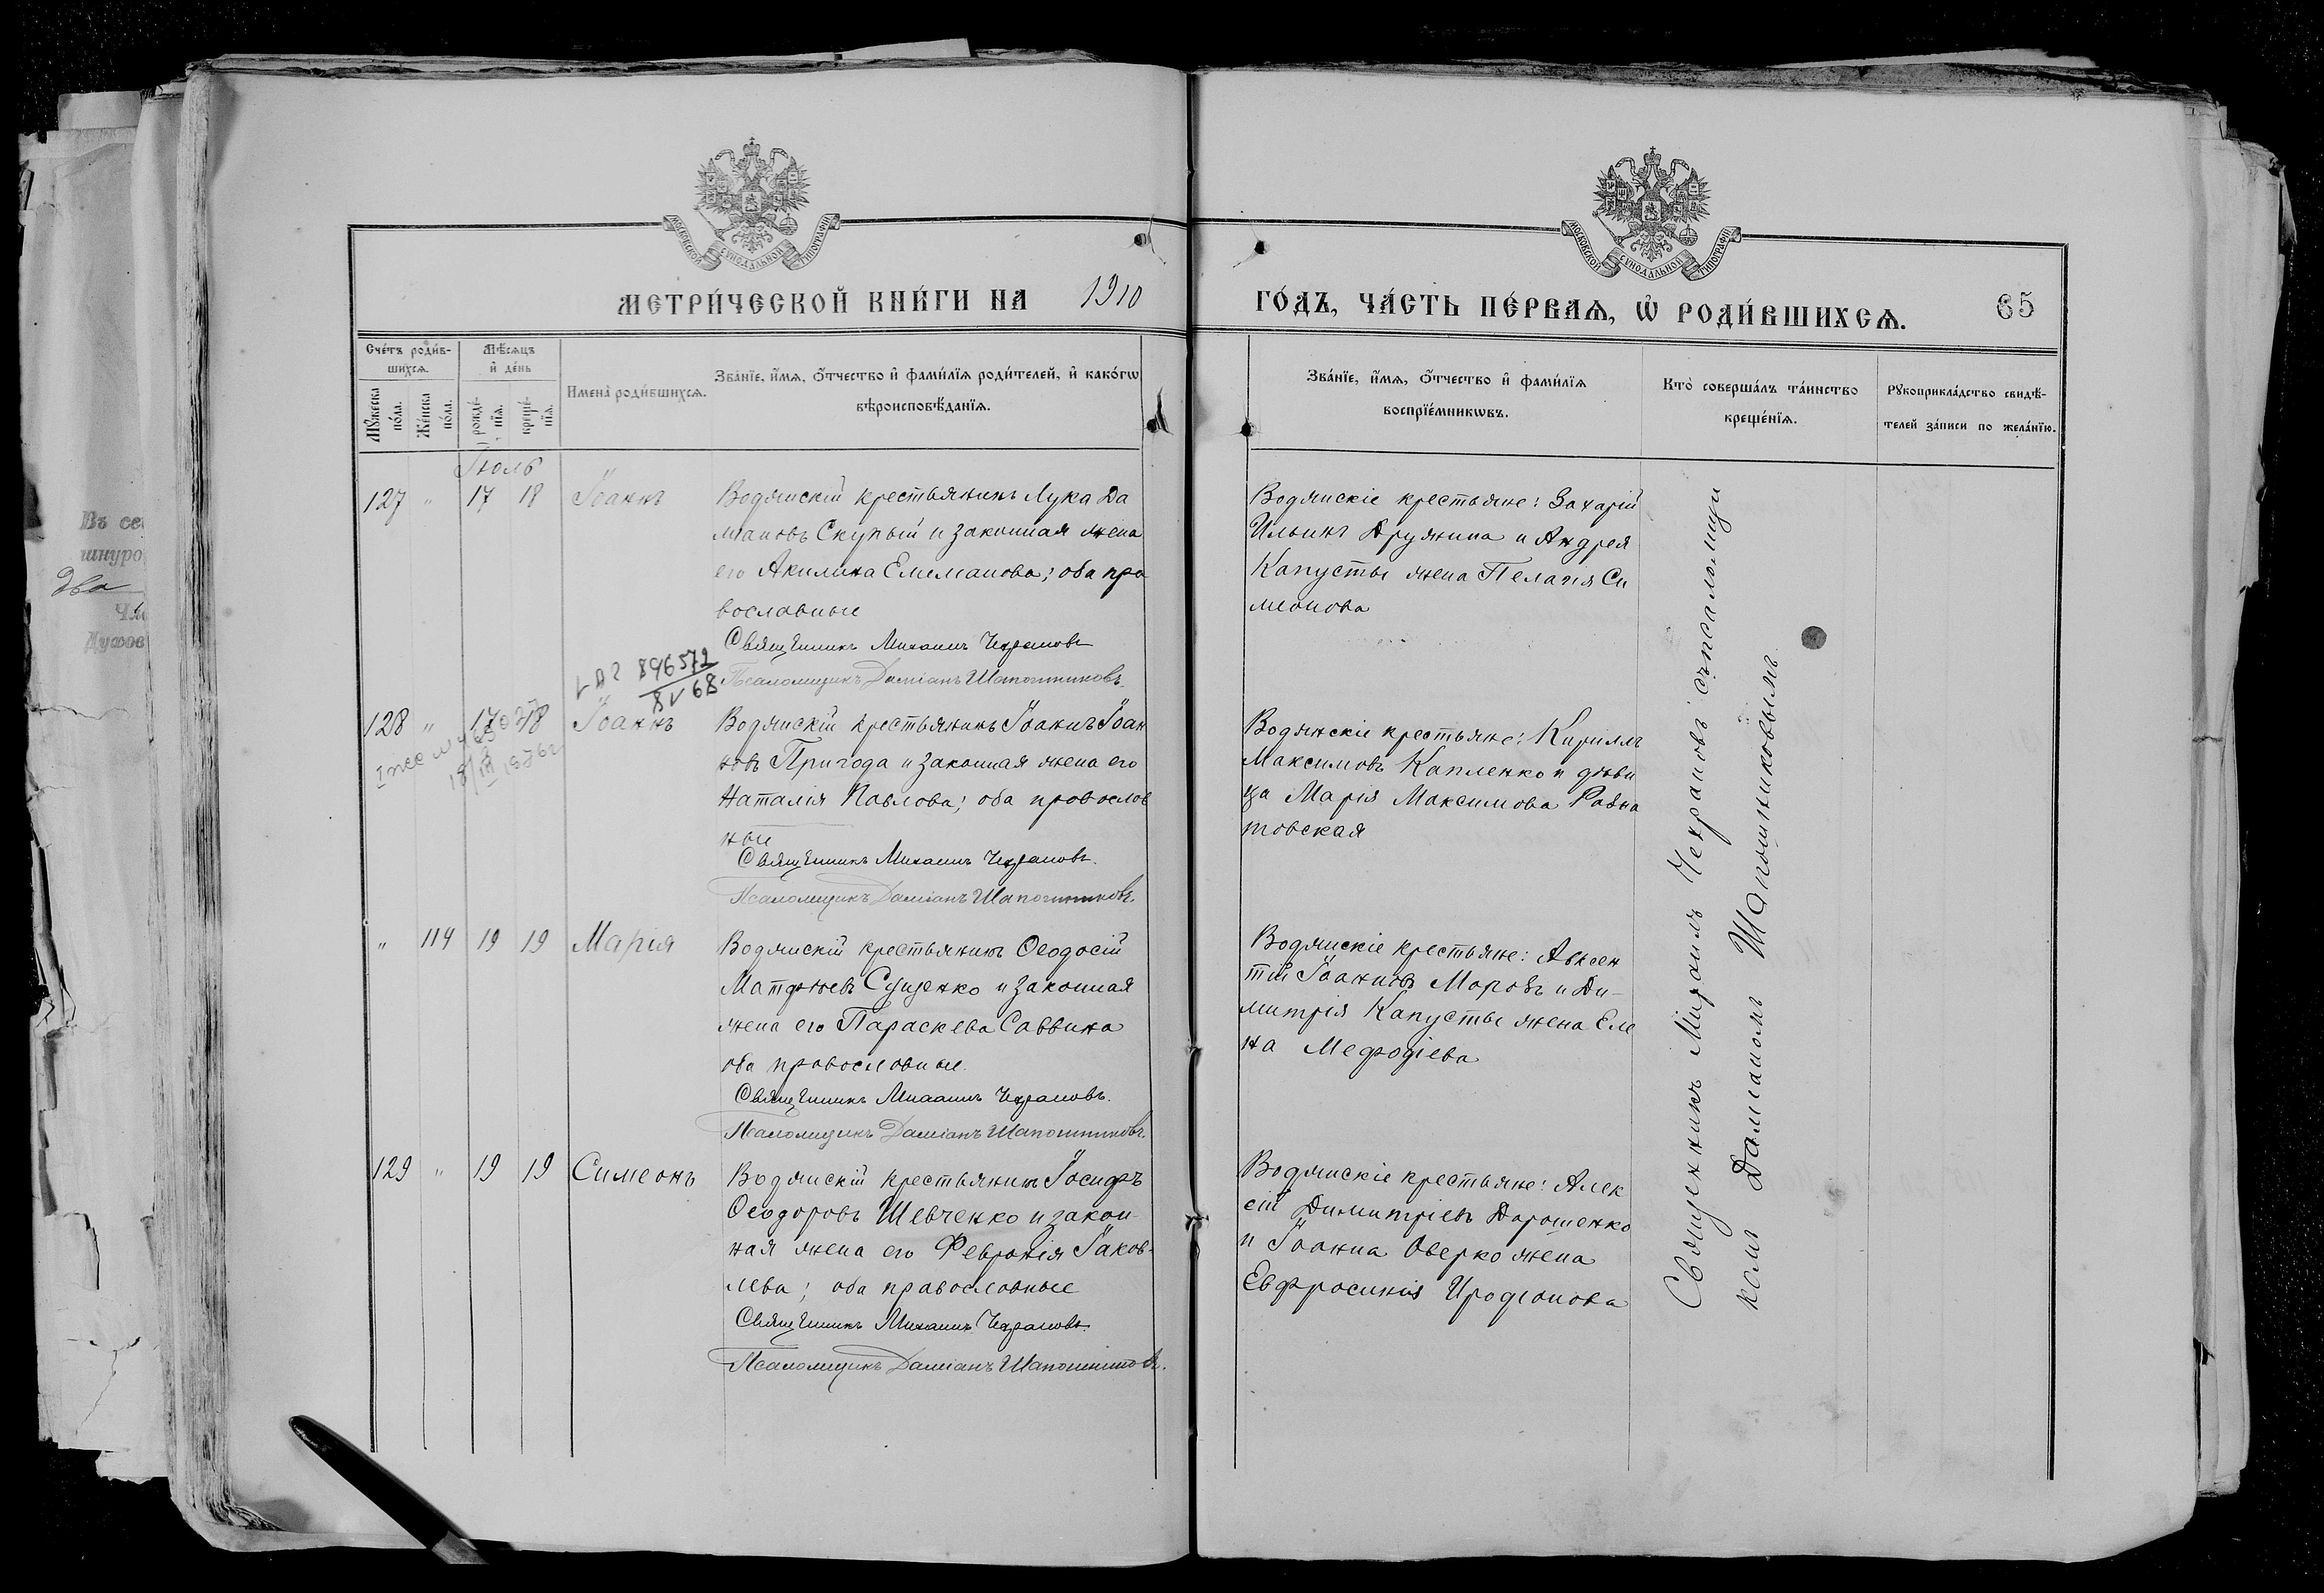 МОСКОВСКОЙ СУНОДАЛЬНОЙ ТИПОГРАФІИ
МОСКОВСКОЙ СУНОДАЛЬНОЙ ТИПОГРАФІИ
МЕТРИ́ЧЕСКОЙ КНИ́ГИ НА 1910 ГО́ДЪ, ЧА́СТЬ ПЕ́РВАѦ, Ѡ҆ РОДИ́ВШИХСѦ. 65
Сче́тъ роди́в-
шихсѧ.
Мѹжеска по́ла.
Же́нска по́ла.
Мѣ́сѧцъ
и҆ де́нь
рожде́-
нїѧ.
креще́-
нїѧ.
И҆мена̀ роди́вшихсѧ.
Зва́нїе, и҆́мѧ, ѻ҆́тчество и҆ фами́лїѧ роди́телей, и҆ како́гѡ
вѣроисповѣ́данїѧ.
Зва́нїе, и҆́мѧ, ѻ҆́тчество и҆ фами́лїѧ
воспрїе́мникѡвъ.
Кто̀ соверша́лъ та́инство
креще́нїѧ.
Рѹкоприкла́дство свидѣ́-
телей за́писи по жела́нїю.
Іюль
127 " 17 18 Іоаннъ
Водянскій крестьянинъ Лука Да
міановъ Скупый и законная жена
его Акилина Емеліанова; оба пра
вославные
Священникъ Михаилъ Чехрановъ
Псаломщикъ Даміанъ Шапошниковъ.
Водянскіе крестьяне: Захарій
Ильинъ Дружина и Андрея
Капусты жена Пелагія Си
меонова
896572
8 V 68
128 " 17 18 Іоаннъ
Водянскій крестьянинъ Іоаннъ Іоан
новъ Пригода и законная жена его
Наталія Павлова; оба православ
ные
Священникъ Михаилъ Чехрановъ.
Псаломщикъ Даміанъ Шапошниковъ.
Водянскіе крестьяне: Кириллъ
Максимовъ Капленко и дѣви
ца Марія Максимова
товская
" 114 19 19 Марія
Водянскій крестьянинъ Ѳеодосій
Матфѣевъ Сущенко и законная
жена его Параскева Саввина
оба православные.
Священникъ Михаилъ Чехрановъ.
Псаломщикъ Даміанъ Шапошниковъ.
Водянскіе крестьяне: Авксен
тій Іоанновъ Моровъ и Ди-
митрія Капусты жена Еле
на Мефодіева
129 " 19 19 Симеонъ
Водянскій крестьянинъ Іосифъ
Ѳеодоровъ Шевченко и закон-
ная жена его Февронія Іаков-
лева; оба православные
Священникъ Михаилъ Чехрановъ.
Псаломщикъ Даміанъ Шапошниковъ.
Водянскіе крестьяне: Алек
сій Димитріевъ Дорошенко
и Іоанна Оверко жена
Евфросинія Иродіонова
Священникъ Михаилъ Чехрановъ съ псаломщи
комъ Даміаномъ Шапошниковымъ
Въ се
шнуро
два